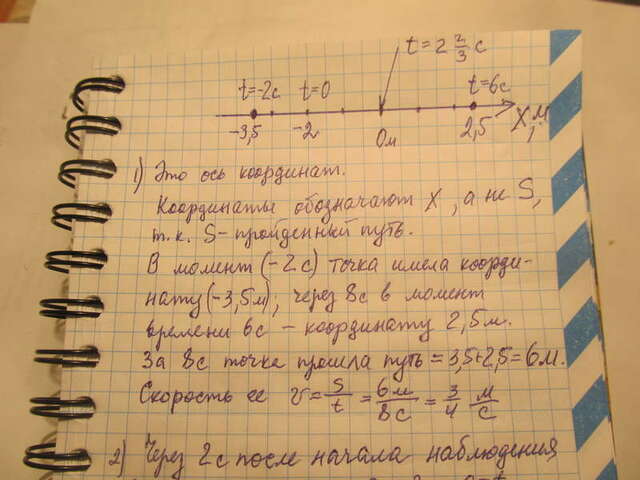 t=2 2/3 c
t=-2c t=0 t=6c
-3,5 -2 0м 2,5 X,м
1) Это ось координат.
Координаты обозначают X, а не S,
т.к. S- пройденный путь.
В момент (-2с) точка имела коорди-
нату (-3,5м), через 8с в момент
времени 6с – координату 2,5м.
За 8с точка прошла путь = 3,5+2,5=6м.
Скорость ее v = S/t = 6м/8с = 3/4 м/с
2) Через 2с после начала наблюдения